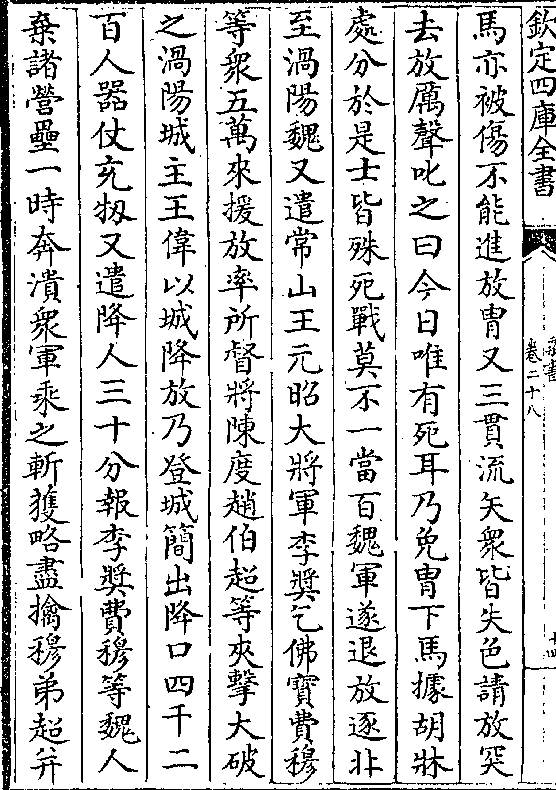 欽定四庫全書
卷二十八
馬亦被傷不能進放胄又三貫流矢衆皆失色請放突
去放厲聲叱之曰今日唯有死耳乃免胄下馬據胡牀
處分於是士皆殊死戰莫不一當百魏軍遂退放逐北
至渦陽魏又遣常山王元昭大將軍李奬乞佛寶費穆
等衆五萬來援放率所督將陳度趙伯超等夾擊大破
之渦陽城主王偉以城降放乃登城簡出降口四千二
百人器仗充牣又遣降人三十分報李奬費穆等魏人
棄諸營壘一時奔潰衆軍乘之斬獲略盡擒穆弟超并